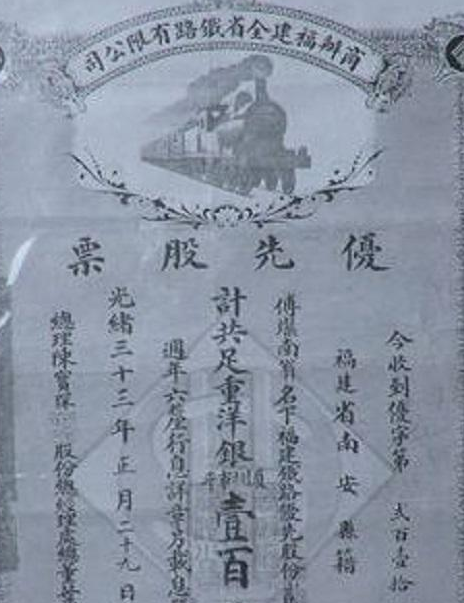 商辦福建全省鐵路有限公司
優先股票
今收到優字第 弍百壹拾
福建省南安縣籍
傅堪南翁名下福建鐵路優先股份
計共足重洋銀壹百
週年六釐行息詳章另載息
光緒三十三年正月二十九日
總理陳寶琛 股份總經理